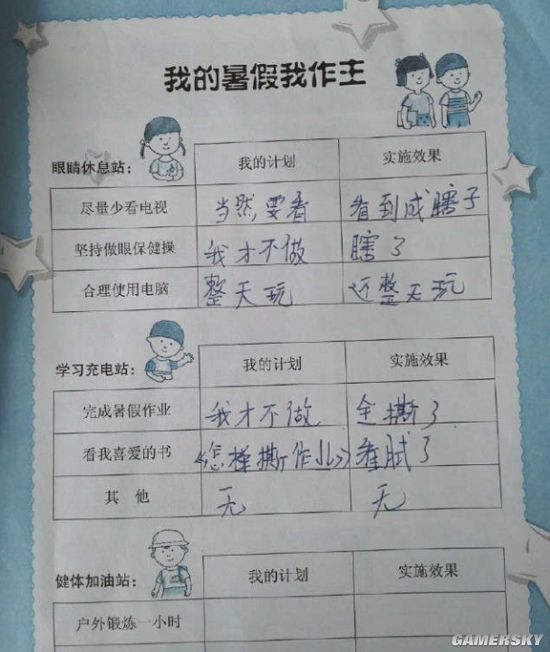 我的暑假我作主
眼睛休息站： 我的计划 实施效果
尽量少看电视 当然要看 看到成瞎子
坚持做眼保健操 我才不做 瞎了
合理使用电脑 整天玩 还整天玩
学习充电站： 我的计划 实施效果
完成暑假作业 我才不做 全撕了
看我喜爱的书 《怎样撕作业》 看腻了
其他 无 无
健体加油站： 我的计划 实施效果
户外锻炼一小时
GAMERSKY